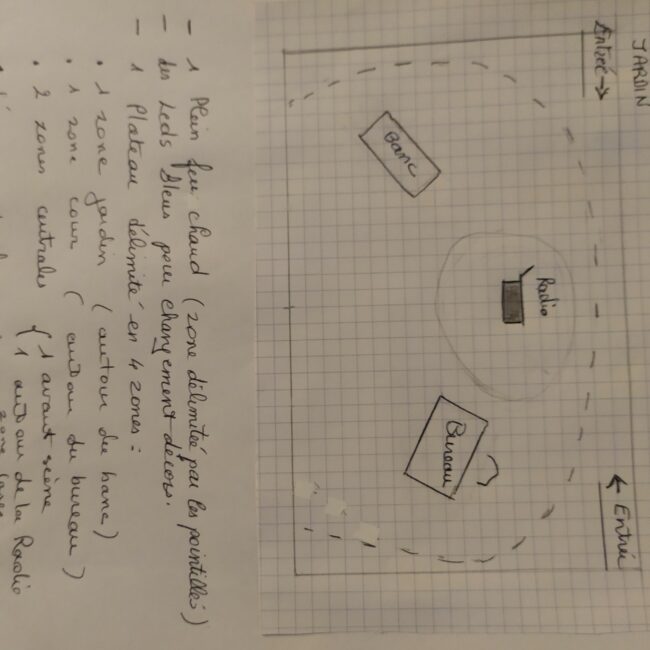 JARDIN
Entrée →
Banc
Radio
Bureau
← Entrée
- 1 Plein feu chaud (zone délimitée par les pointillés)
- des Leds Bleus pour changement décors.
- 1 Plateau délimité en 4 zones :
• 1 zone jardin (autour du banc)
• 1 zone cour (autour du bureau)
• 2 zones centrales (1 avant scène
(1 autour de la Radio